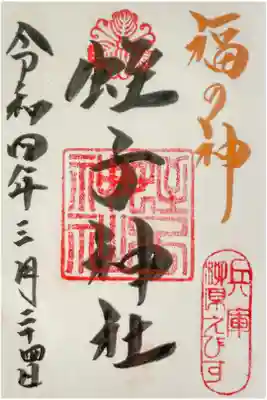 福の神
兵庫
湊川えびす
蛭子神社
令和四年三月二十四日